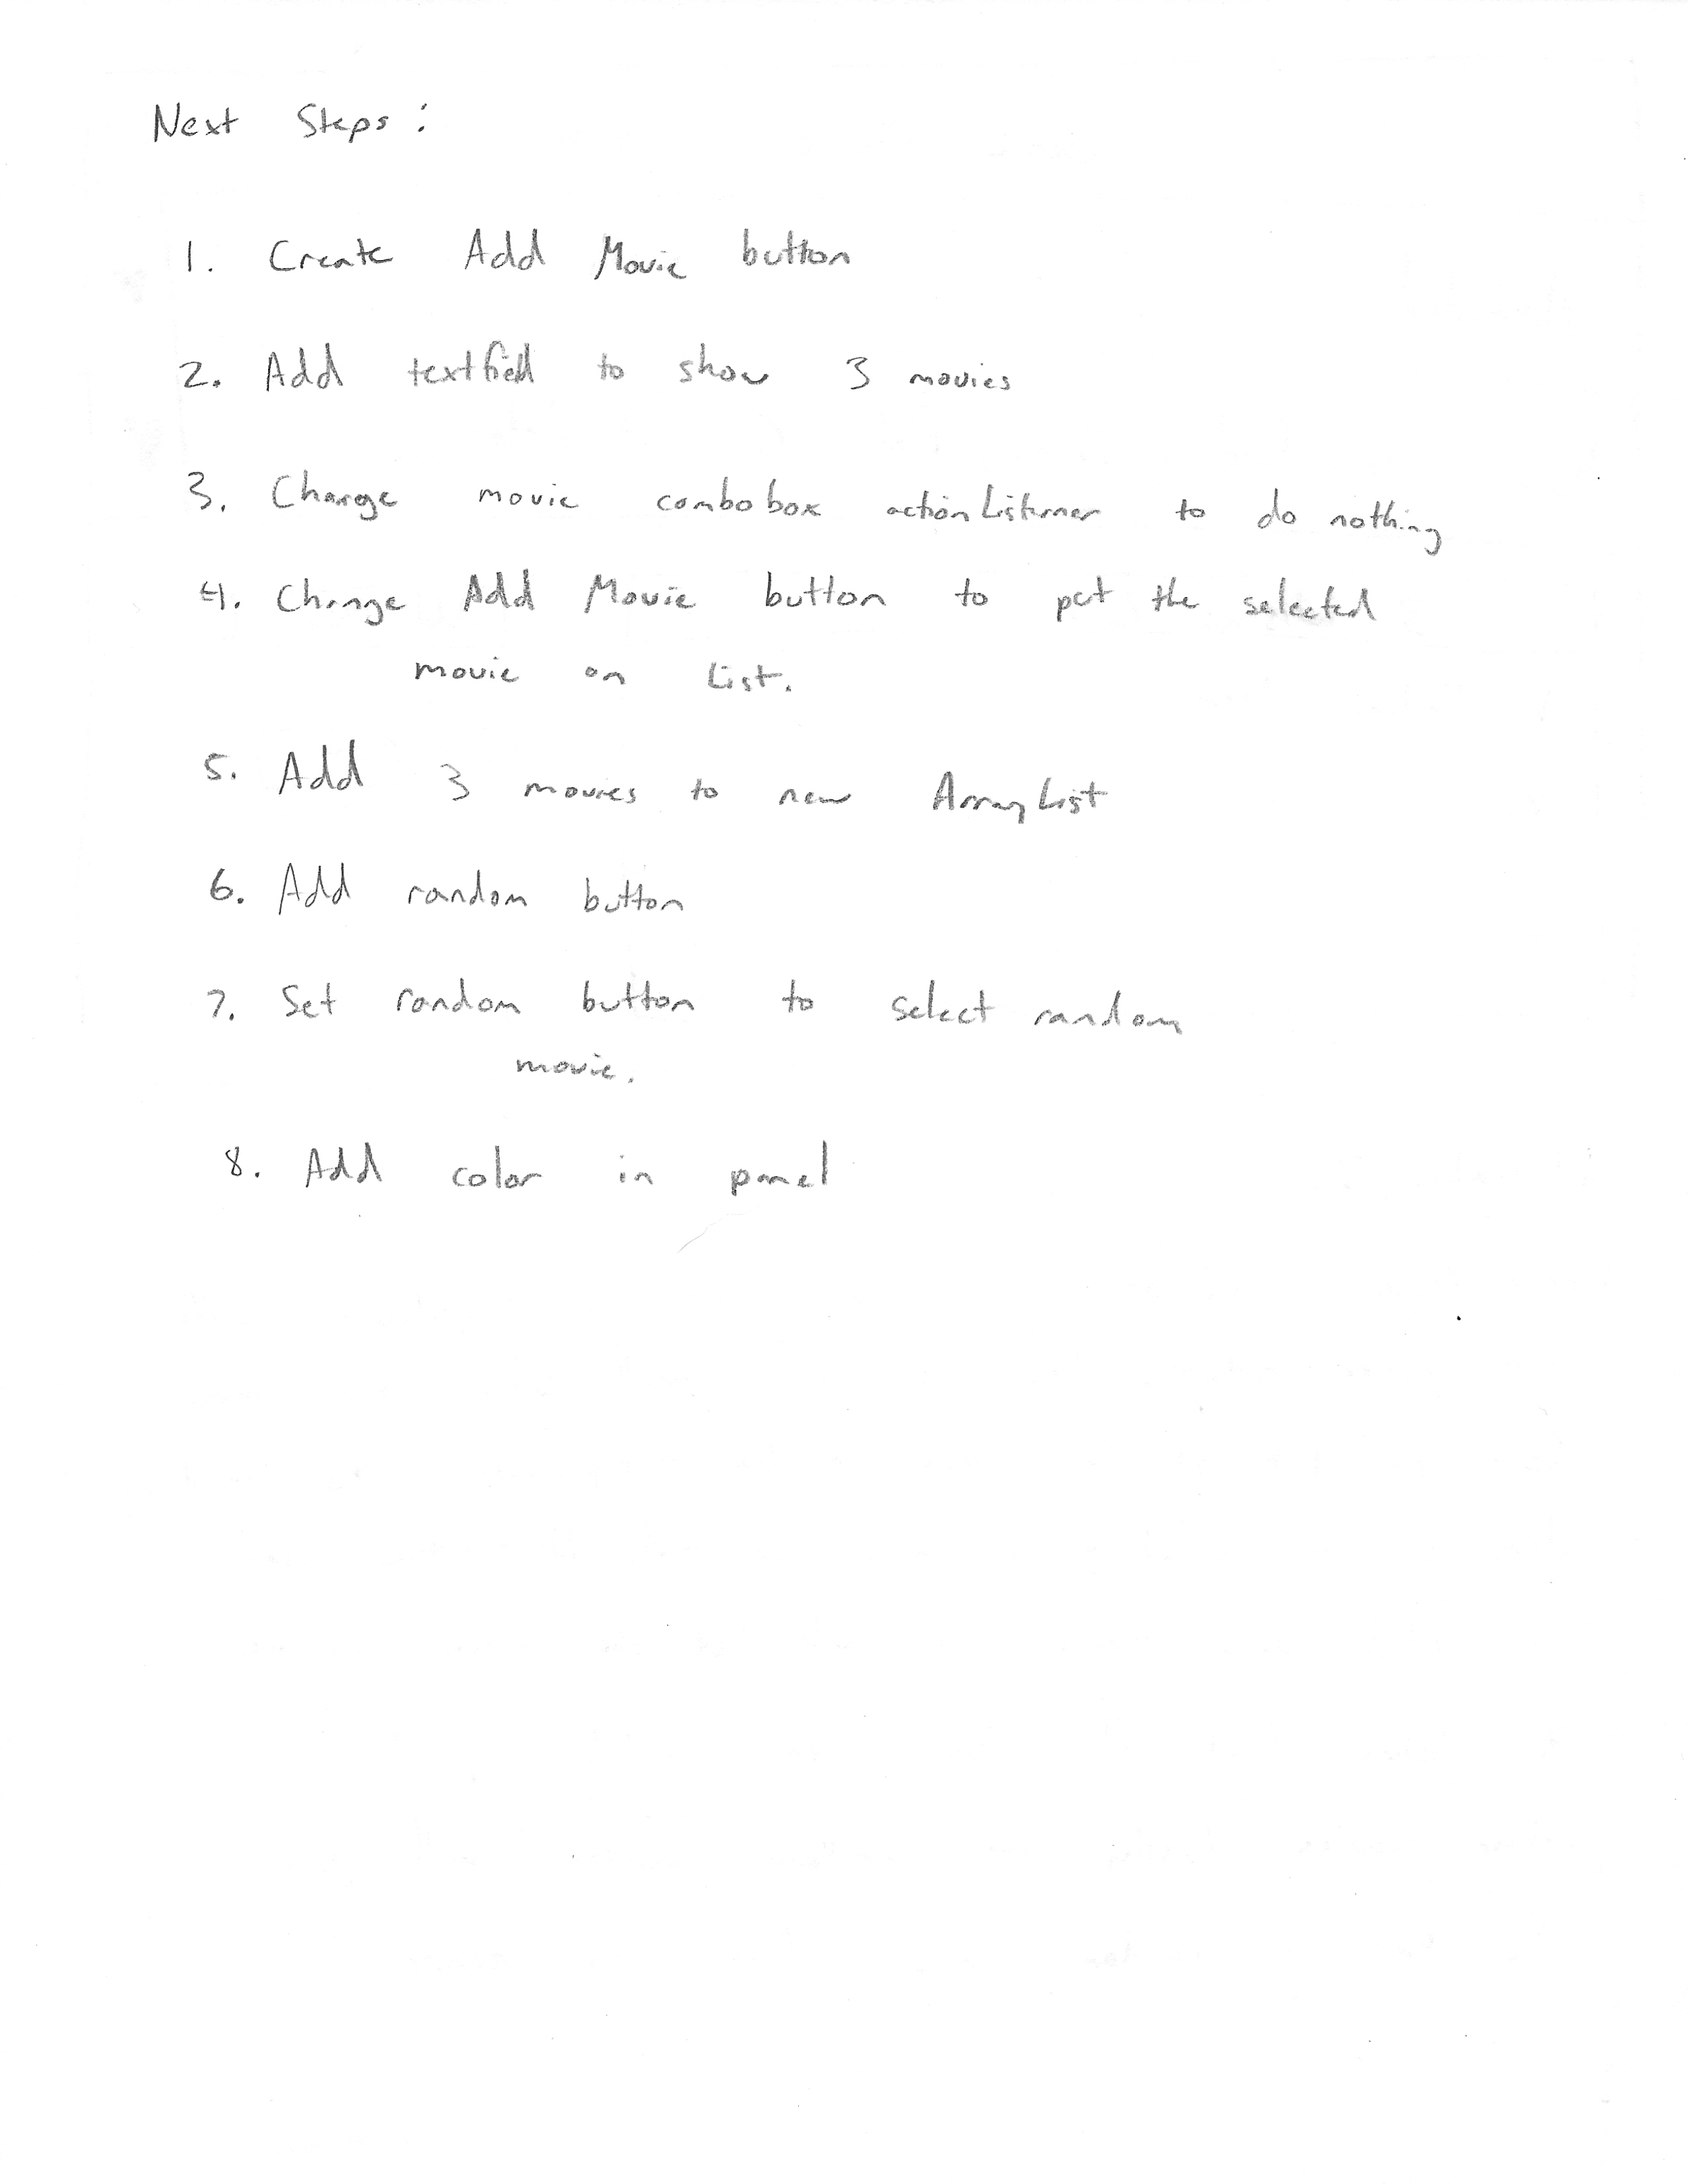 Next Steps:
1. Create Add Movie button
2. Add textfield to show 3 movies
3. Change movie combobox actionListener to do nothing
4. Change Add Movie button to put the selected
movie on List.
5. Add 3 movies to new ArrayList
6. Add random button
7. Set random button to select random
movie.
8. Add color in panel